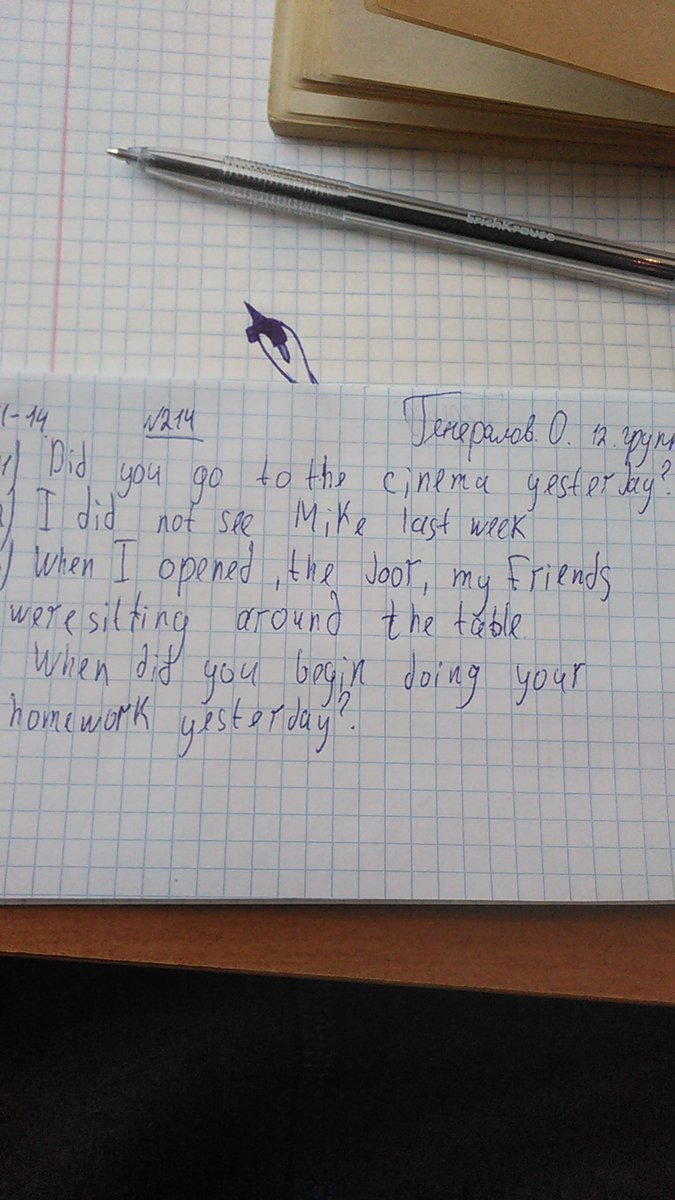 ErichKrause
-14 №214 Генералов. О. 12. груп
1) Did you go to the cinema yesterday?.
) I did not see Mike last week
) When I opened , the door, my Friends
were sitting around the table.
When did you begin doing your
homework yesterday?.